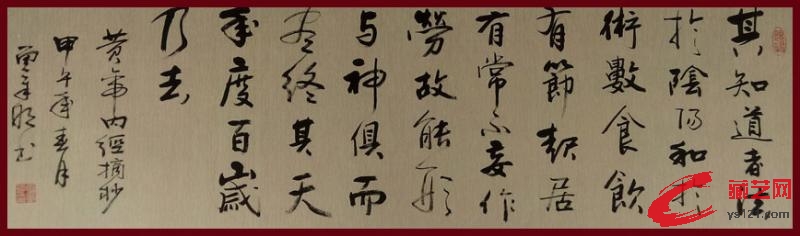 其知道者法
於陰阳和於
術數食飲
有節起居
有常不妄作
勞故能形
与神俱而
尽終其天
年度百歲
乃去
黄帝内經摘抄
甲午年春月
藏艺网